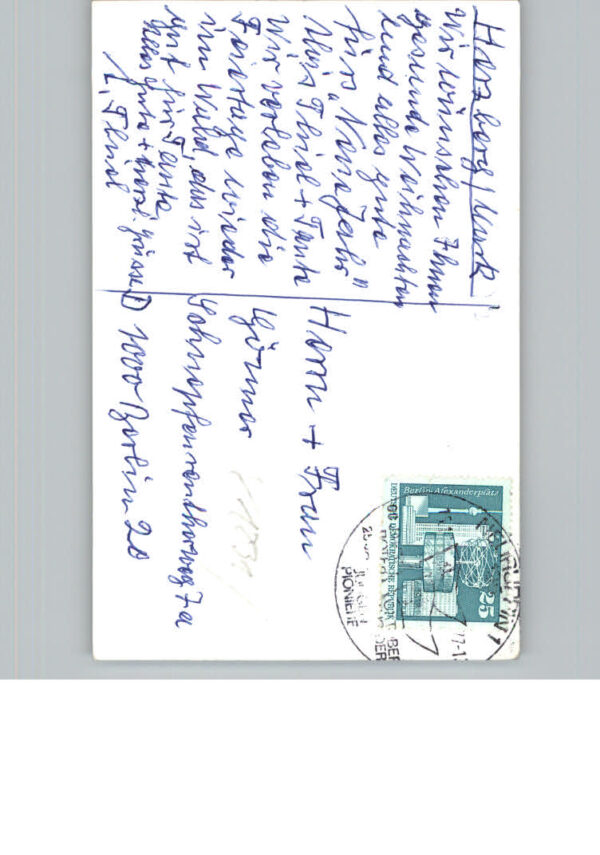 Herzberg/Mark
Wir wünschen Ihnen
gesunde Weihnachten
und alles gute
fürs "Neue Jahr"
Ihre Thiel + Tante
Wir verleben die
Feiertage wieder
im Wald, das ist
gut für Tante
Alles gute + herzl. Grüsse
Thiel
Herrn + Frau
Görner
D 1000 Berlin 20
Berlin-Alexanderplatz
DEUTSCHE DEMOKRATISCHE REPUBLIK
25
NEURUPPIN 1
PIONIERE